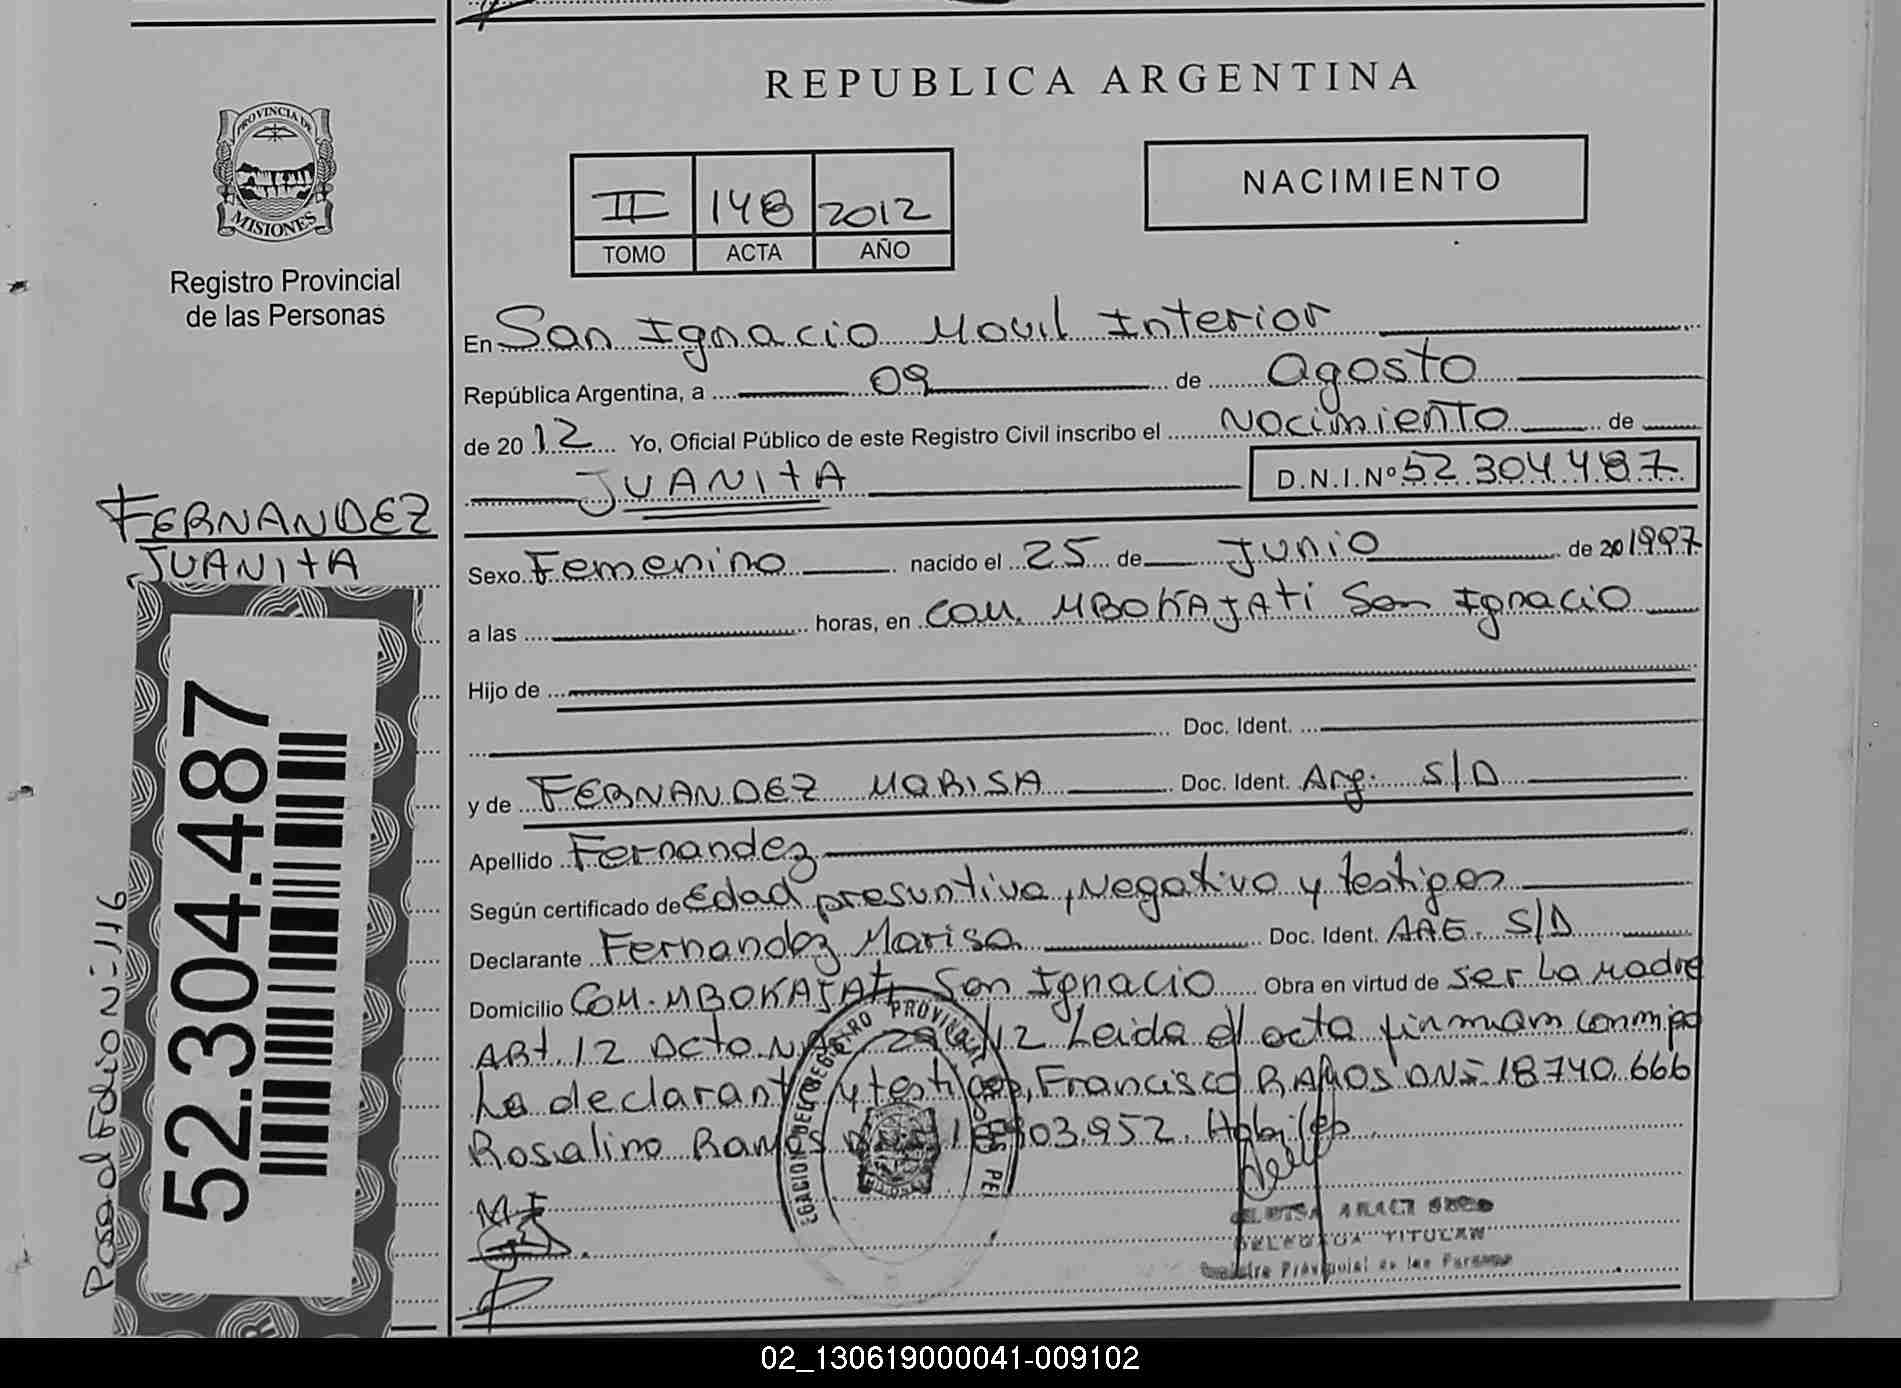 REPUBLICA ARGENTINA
PROVINCIA DE
MISIONES
Registro Provincial
de las Personas
II 148 2012
TOMO ACTA AÑO
NACIMIENTO
En San Ignacio Movil Interior
República Argentina, a 09 de Agosto
de 2012 Yo, Oficial Público de este Registro Civil inscribo el Nacimiento de
JUANITA D.N.I.Nº 52.304.487
FERNANDEZ
JUANITA
Sexo Femenino nacido el 25 de Junio de 201997
a las horas, en COM. MBOKAJATI San Ignacio
Hijo de
Doc. Ident.
y de FERNANDEZ MARISA Doc. Ident. Arg. S/D
Apellido Fernandez
Según certificado de Edad presuntiva, Negativo y testigos
Declarante Fernandez Marisa Doc. Ident. ARG. S/D
Domicilio COM. MBOKAJATI San Ignacio Obra en virtud de ser La Madre
Art. 12 Leida el acta firman conmigo
La declarante y testigos, Francisco RAMOS DNI 18740.666
Rosalino Ramos 03.952. Habiles
M F
DELEGACION DEL REGISTRO PROVINCIAL
ARACI
DELEGADA TITULAR
Registro Provincial de las Personas
52.304.487
Pasa al Folio Nº 116
02_130619000041-009102